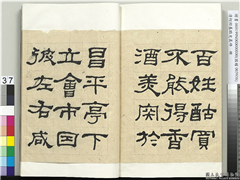 百姓酤買
不能得香
酒美肉於
昌平亭下
立會市因
彼左右咸
37